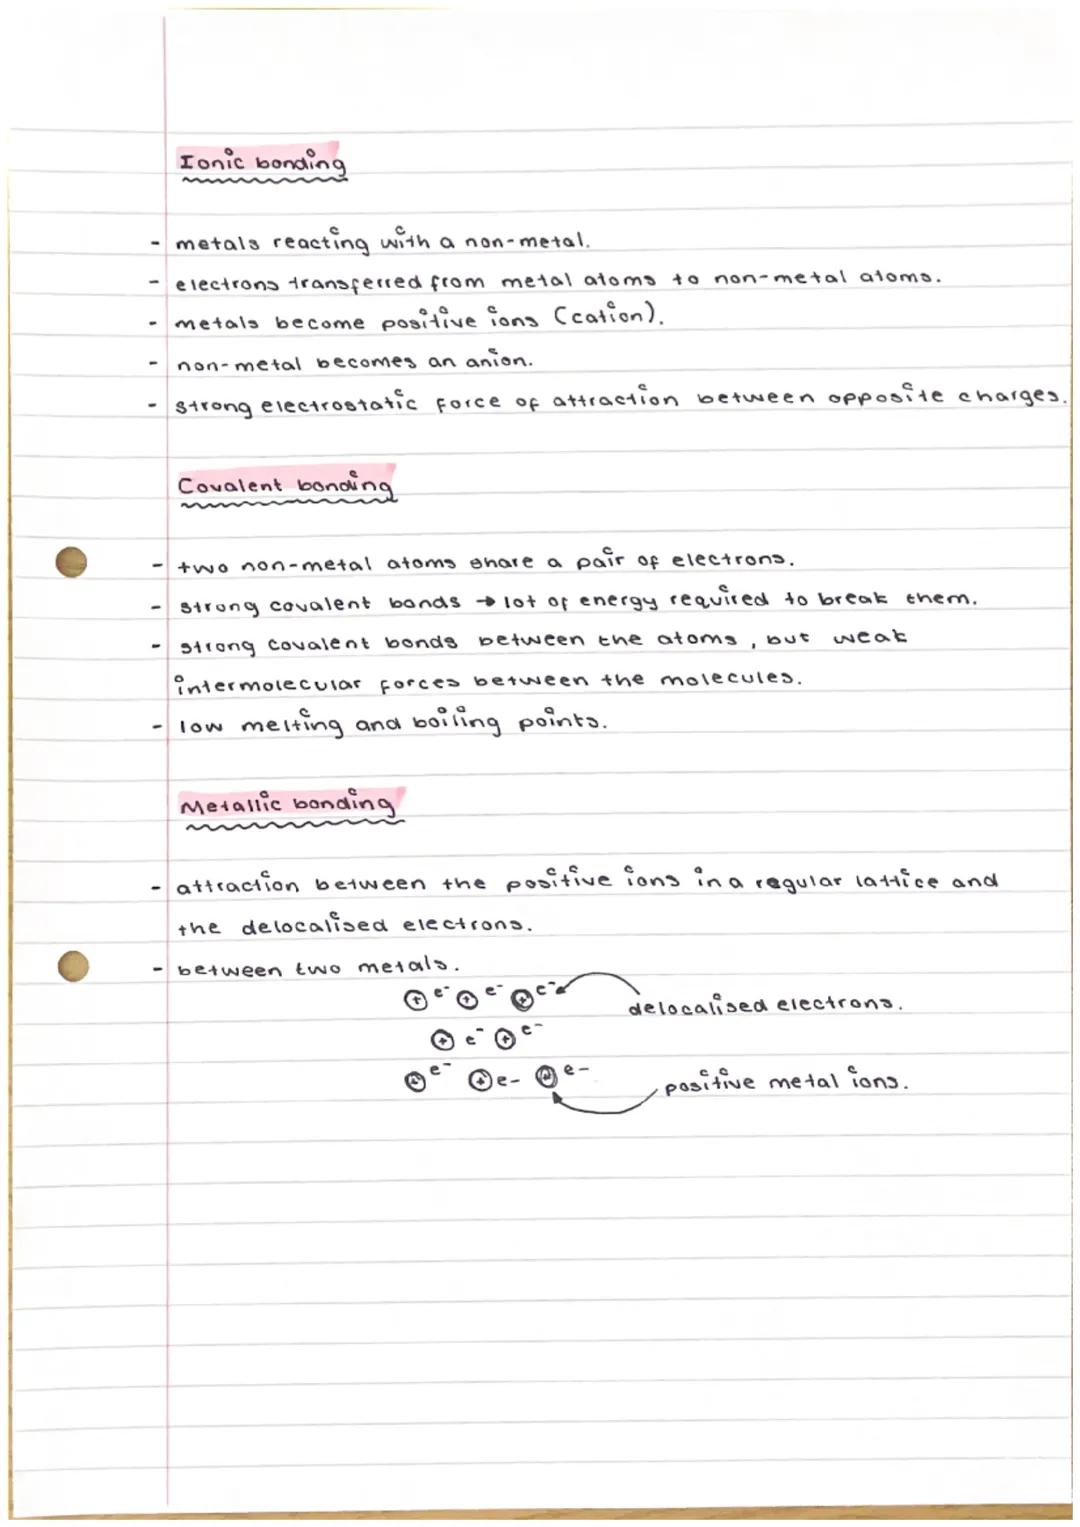 Ionic bonding
- metals reacting with a non-metal.
- electrons transferred from metal atoms to non-metal atoms.
- metals become positive ions (cation).
- non-metal becomes an anion.
- strong electrostatic force of attraction between opposite charges.
Covalent bonding
- two non-metal atoms share a pair of electrons.
- strong covalent bonds → lot of energy required to break them.
- strong covalent bonds between the atoms, but weak
intermolecular forces between the molecules.
- low melting and boiling points.
Metallic bonding
- attraction between the positive ions in a regular lattice and
the delocalised electrons.
- between two metals.
+ e⁻ + e⁻ + e⁻
delocalised electrons.
+ e⁻ + e⁻
+ e⁻ + e- + e-
positive metal ions.